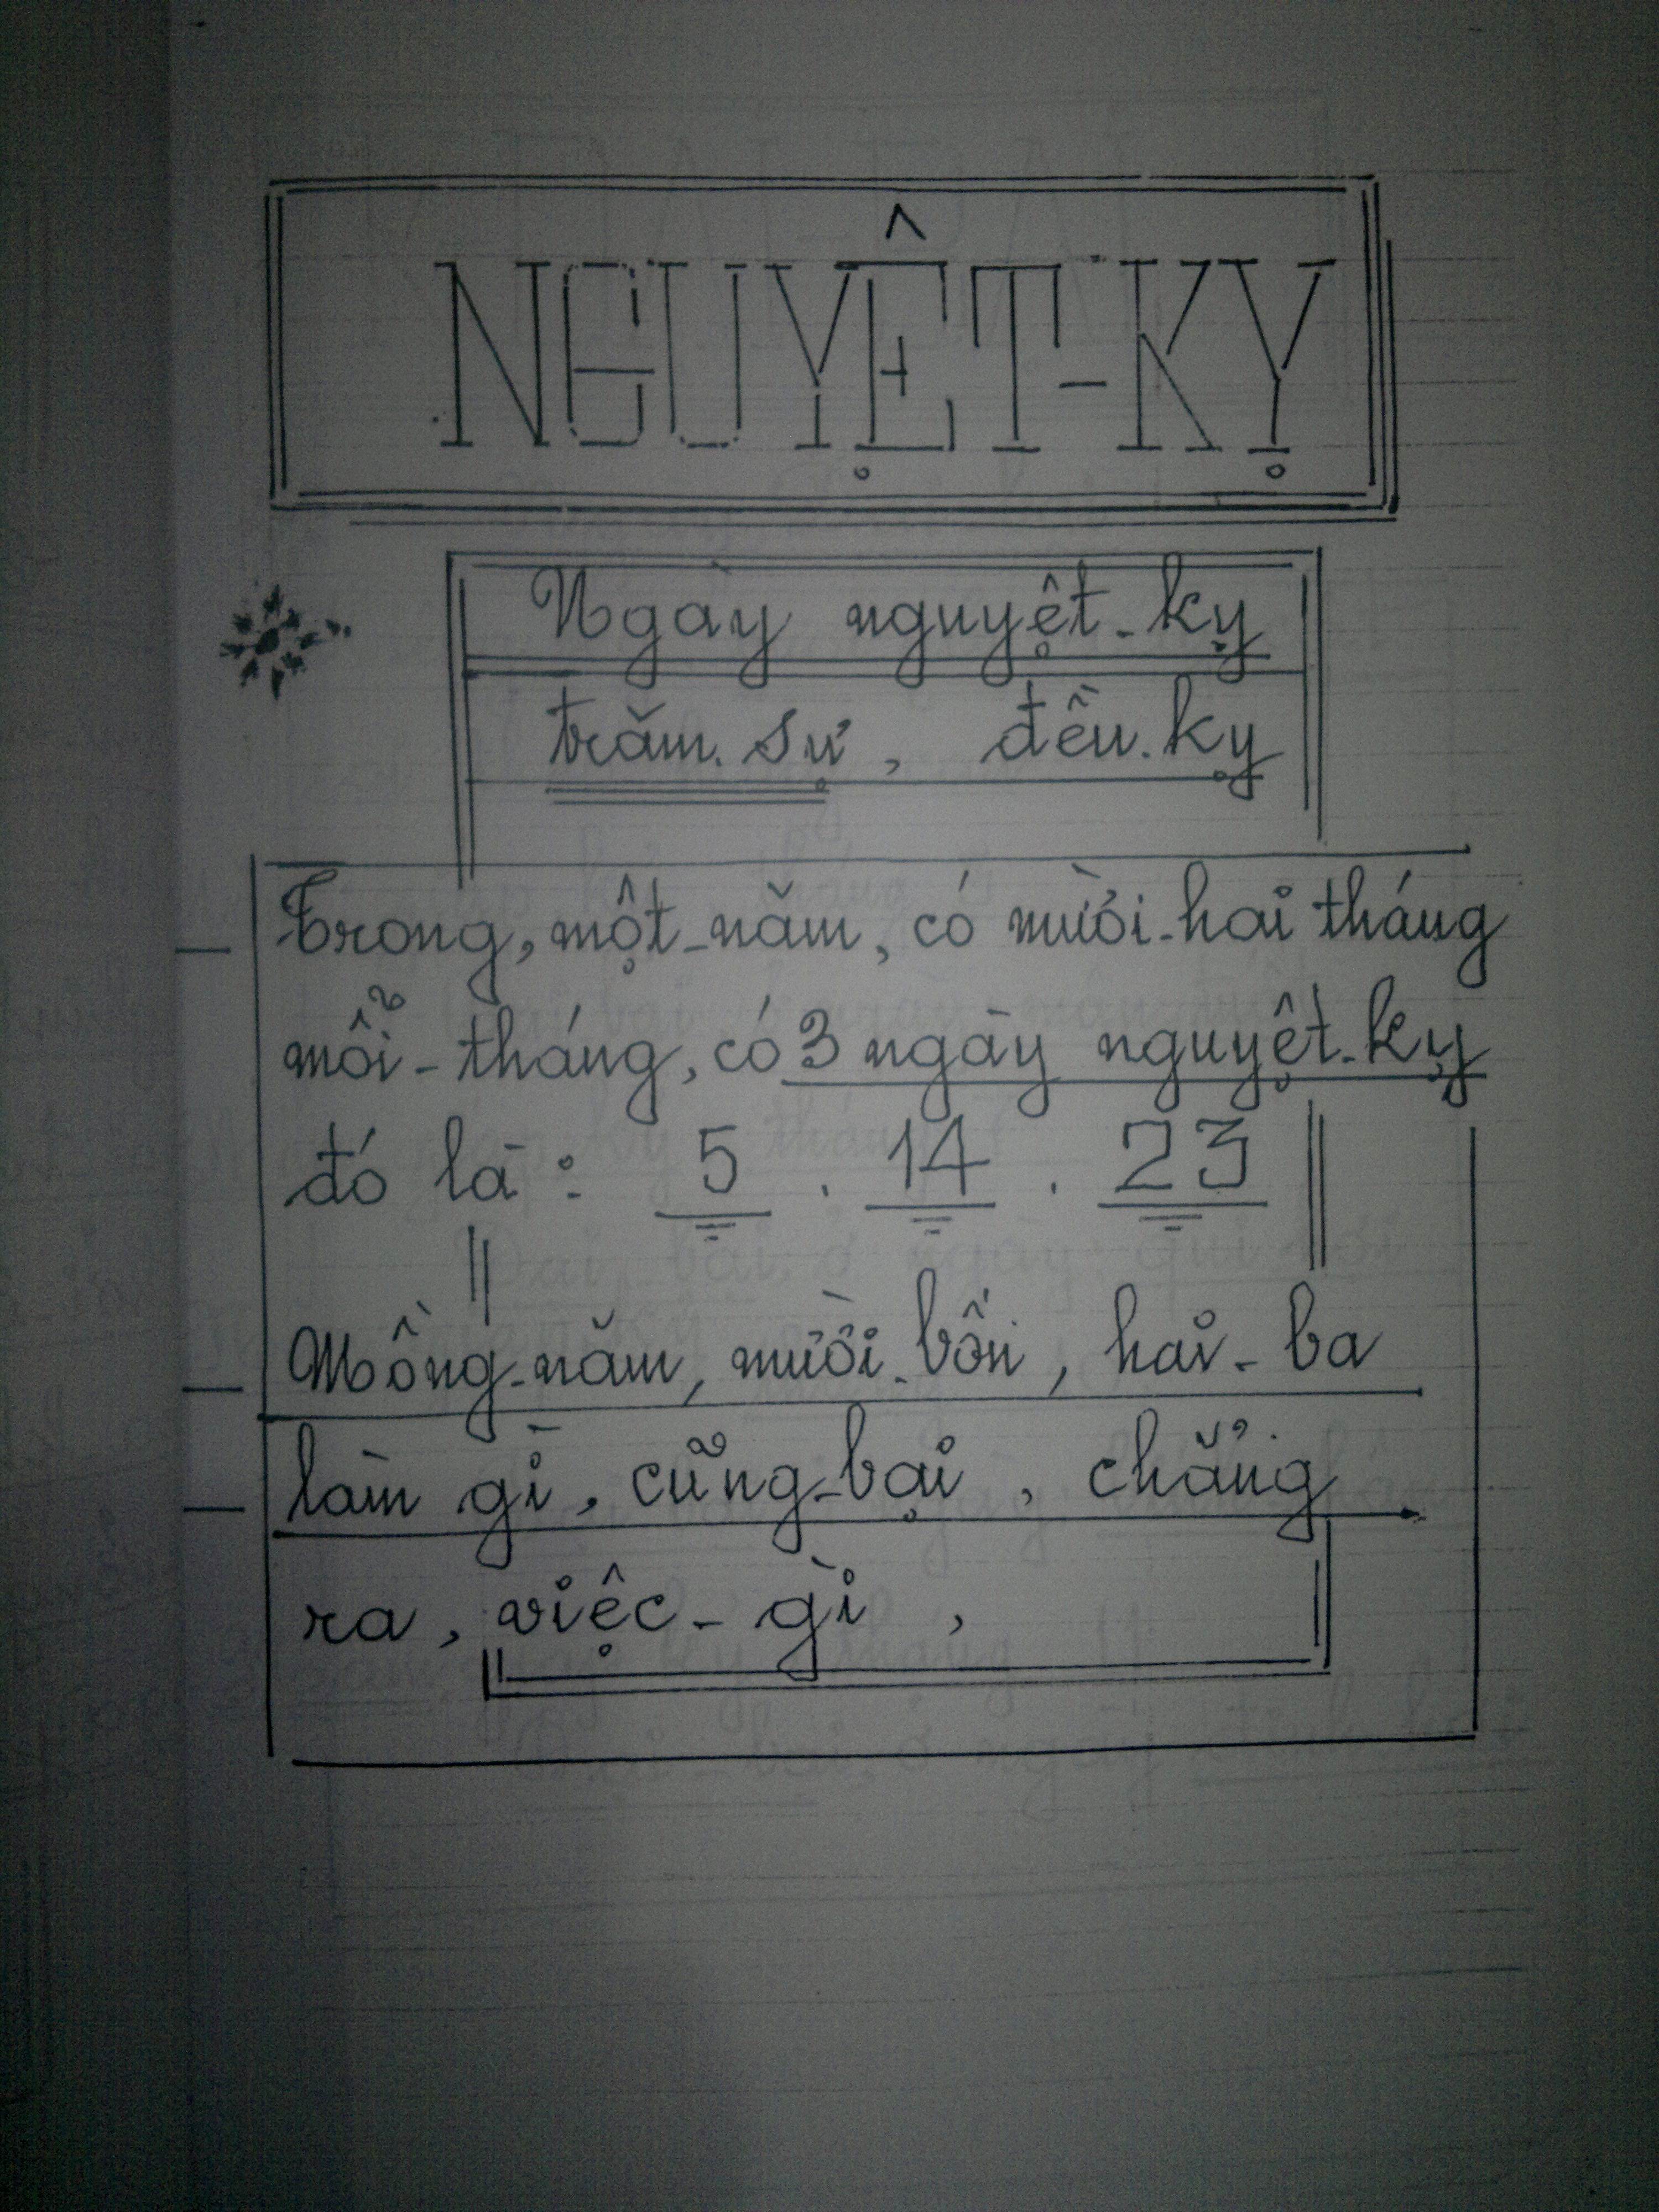 NGUYỆT-KỴ
Ngày nguyệt-kỵ
trăm.sự, đều.kỵ
Trong, một-năm, có mười-hai tháng
mỗi-tháng, có 3 ngày nguyệt-kỵ
đó là: 5 . 14 . 23
Mồng-năm, mười-bốn, hai-ba
làm gì, cũng-bại, chẳng
ra, việc-gì,